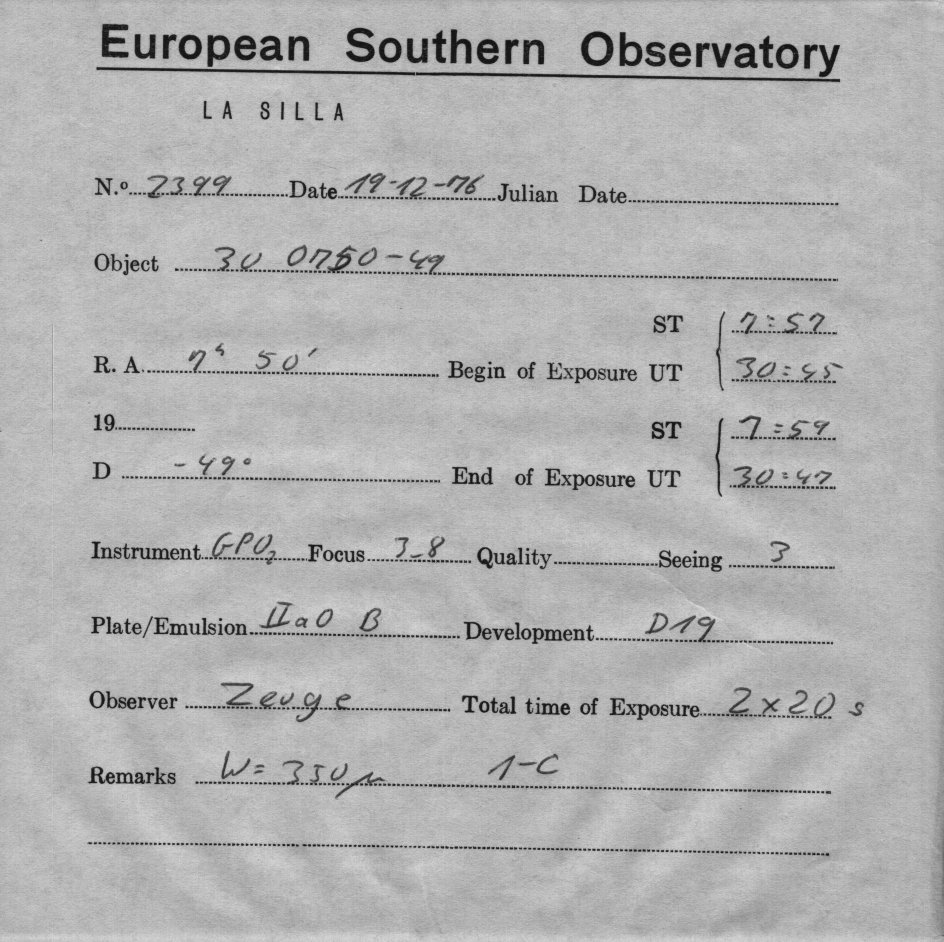 European Southern Observatory
LA SILLA
N.º 2399 Date 19-12-76 Julian Date
Object 3U 0750-49
ST 7:57
R. A. 7h 50' Begin of Exposure UT 30:45
19 ST 7:59
D -49° End of Exposure UT 30:47
Instrument GPO2 Focus 3-8 Quality Seeing 3
Plate/Emulsion IIaO B Development D19
Observer Zeuge Total time of Exposure 2x20 s
Remarks W= 350μ 1-C